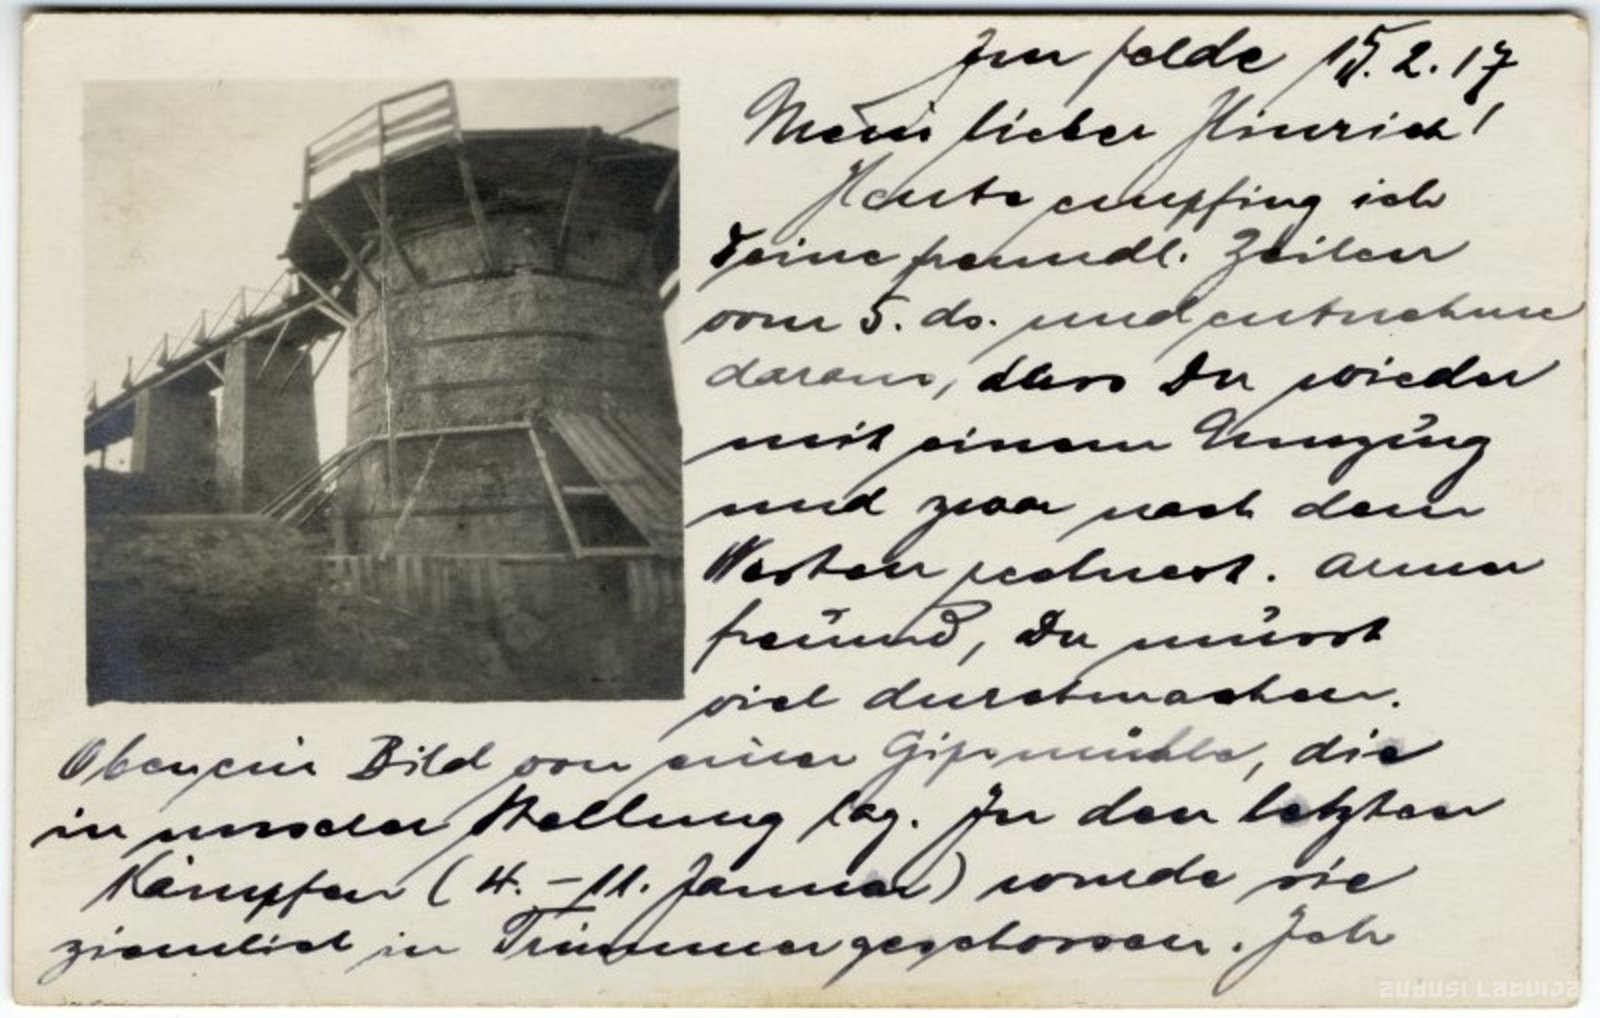 Im Felde 15.2.17
Mein lieber Hinrich!
Heute empfing ich
Deine freundl. Zeilen
vom 5. ds. und entnehme
daraus, dass Du wieder
mit einem Umzug
und zwar nach dem
Westen rechnest. Armer
Freund, Du müsst
viel durchmachen.
Oben ein Bild von einer Gipsmühle, die
in unserer Stellung lag. In den letzten
Kämpfen (4. – 11. Januar) wurde sie
ziemlich in Trümmer geschossen. Ich
ZUDUSI LATVIJA